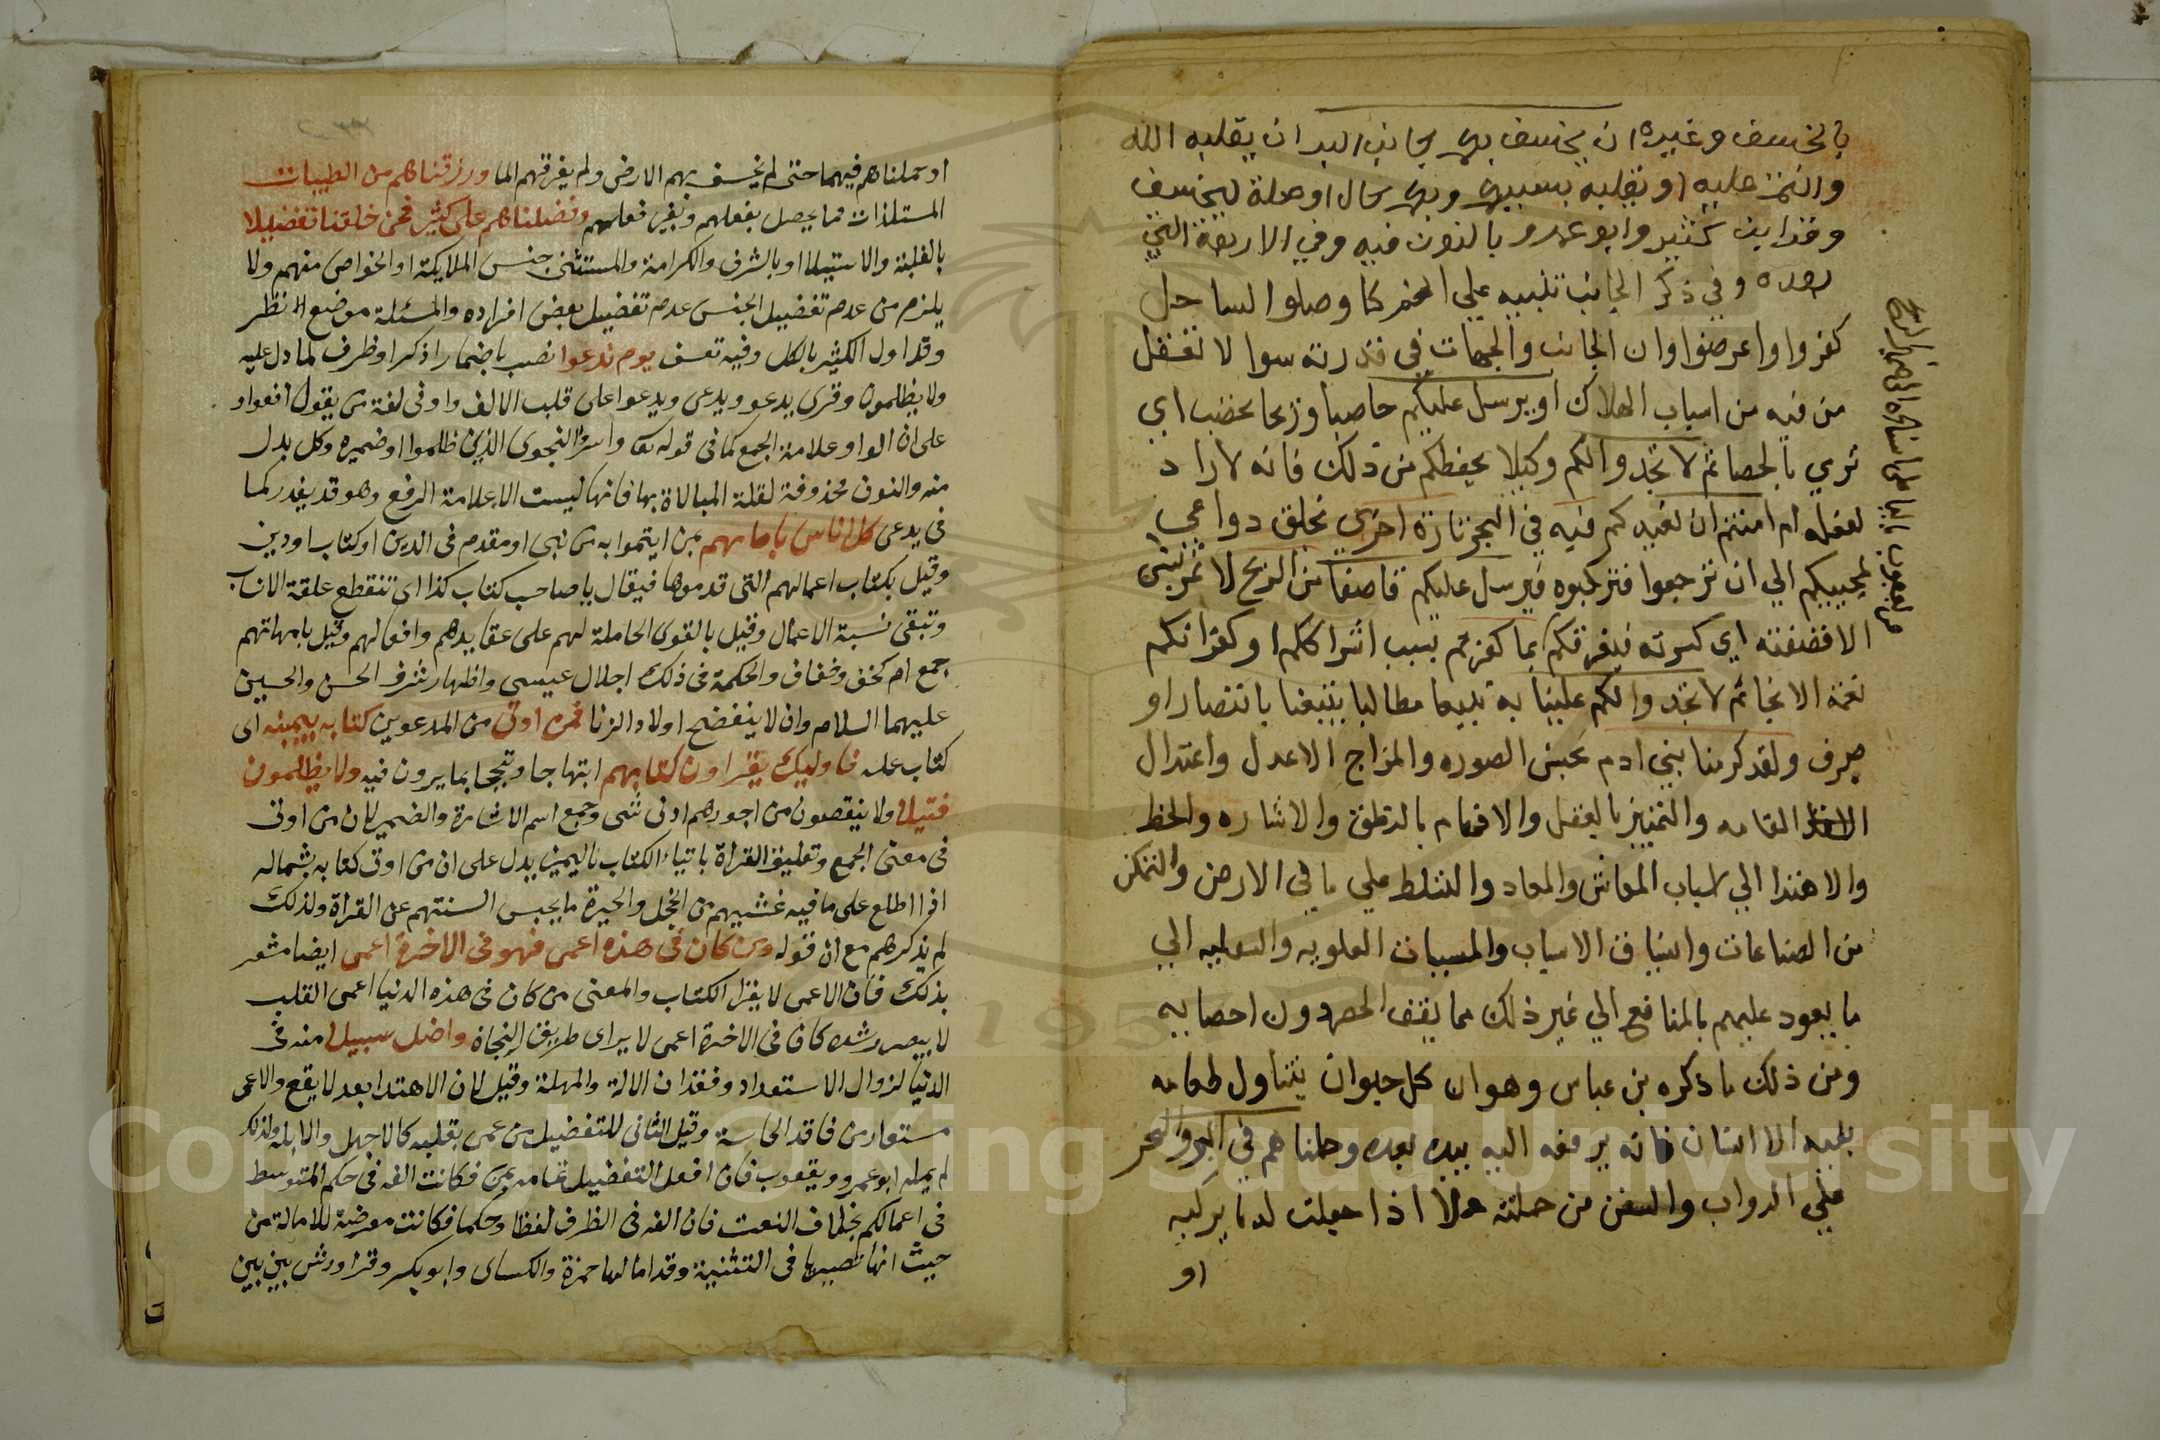 بالخسف وغيره ان يخسف بكم جانب البر ان يقلبه الله
وانتم عليه او يقلبه بسببكم وبكم حال او صلة ليخسف
وقرا ابن كثير وابو عمرو بالنون فيه وفي الاربعة التي
بعده وفي ذكر الجانب تنبيه علي انهم كما وصلوا الساحل
كفروا واعرضوا وان الجانب والجهات في قدرته سوا لا تعقل
من فيه من اسباب الهلاك او يرسل عليكم حاصبا وريحا تحصب اي
ترمي بالحصا ثم لا تجدوا لكم وكيلا يحفظكم من ذلك فانه لا راد
لفعله ام امنتم ان نعيدكم فيه في البحر تارة اخري نخلق دواعي
لجيبكم الي ان ترجعوا فتركبوه فيرسل عليكم قاصفا من الريح لا تمر بشي
الا قصفته اي كسرته فيغرقكم بما كفرتم بسبب اشراككم او كفرانكم
نعمة الانجا ثم لا تجدوا لكم علينا به تبيعا مطالبا يتبعنا بانتصار او
صرف ولقد كرمنا بني ادم بحسن الصوره والمزاج الاعدل واعتدال
القامه والتمييز بالعقل والافهام بالنطق والاشاره والخط
والاهتدا الي اسباب المعاش والمعاد والتسلط علي ما في الارض والتمكن
من الصناعات وانسياق الاسباب والمسببات العلويه والسفليه الي
ما يعود عليهم بالمنافع الي غير ذلك مما يقف الحصر دون احصاييه
ومن ذلك ما ذكره بن عباس وهو ان كل حيوان يتناول طعامه
بفيه الا الانسان فانه يرفعه اليه بيده بعده وحملناهم في البر والبحر
علي الدواب والسفن من حملته حملا اذا جعلت له ما يركبه
او
او حملناهم فيهما حتى لم يخسف بهم الارض ولم يغرقهم الما ورزقناهم من الطيبات
المستلذات مما يحصل بفعلهم وبغير فعلهم وفضلناهم على كثير ممن خلقنا تفضيلا
بالغلبة والاستيلا او بالشرف والكرامة والمستثنى جنس الملايكة او الخواص منهم ولا
يلزم من عدم تفضيل الجنس عدم تفضيل بعض افراده والمسئلة موضع النظر
وقد اول الكثير بالكل وفيه تعسف يوم ندعوا نصب باضمار اذكر او ظرف لما دل عليه
ولا يظلمون وقرى يدعو ويدعى ويدعوا على قلب الالف واوا في لغة من يقول افعوا و
على ان الواو علامة الجمع كما في قوله تعالى واسروا النجوى الذين ظلموا او ضميره وكل بدل
منه والنون محذوفة لقلة المبالاة بها فانها ليست الا علامة الرفع وهو قد يقدر كما
في يدعى كل اناس بامامهم بمن ايتموا به من نبي او مقدم في الدين او كتاب او دين
وقيل بكتاب اعمالهم التى قدموها فيقال يا صاحب كتاب كذا اى تنقطع علقة الانساب
وتبقى نسبة الاعمال وقيل بالقوى الحاملة لهم على عقايدهم وافعالهم وقيل بامهاتهم
جمع ام كخف وخفاف والحكمة في ذلك اجلال عيسى واظهار شرف الحسن والحسين
عليهما السلام وان لا يفتضح اولاد الزنا فمن اوتى من المدعوين كتابه بيمينه اى
كتاب عمله فاوليك يقراون كتابهم ابتهاجا وتبجحا بما يرون فيه ولا يظلمون
فتيلا ولا ينقصون من اجورهم ادنى شى وجمع اسم الاشارة والضمير لان من اوتى
في معنى الجمع وتعليق القراة بايتاء الكتاب باليمين يدل على ان من اوتى كتابه بشماله
اذا اطلع على ما فيه غشيهم من الخجل والحيرة ما يحبس السنتهم عن القراة ولذلك
لم يذكرهم مع ان قوله ومن كان في هذه اعمى فهو في الاخرة اعمى ايضا مشعر
بذلك فان الاعمى لا يقرا الكتاب والمعنى من كان في هذه الدنيا اعمى القلب
لا يبصر رشده كان في الاخرة اعمى لا يرى طريق النجاة واضل سبيلا منه في
الدنيا لزوال الاستعداد وفقدان الالة والمهلة وقيل لان الاهتدا بعد لا يقع والاعمى
مستعار من فاقد الحاسة وقيل الثاني للتفضيل من عمى بقلبه كالاجهل والابله ولذلك
لم يمله ابو عمرو ويعقوب فان افعل التفضيل تمامه بمن فكانت الفه في حكم المتوسط
في اعمالكم بخلاف النعت فان الفه في الظرف لفظا وحكما فكانت معرضة للامالة من
حيث انها تصير يا في التثنية وقد امالها حمزة والكساى وابو بكر وقرا ورش بين بين
Copyright © King Saud University